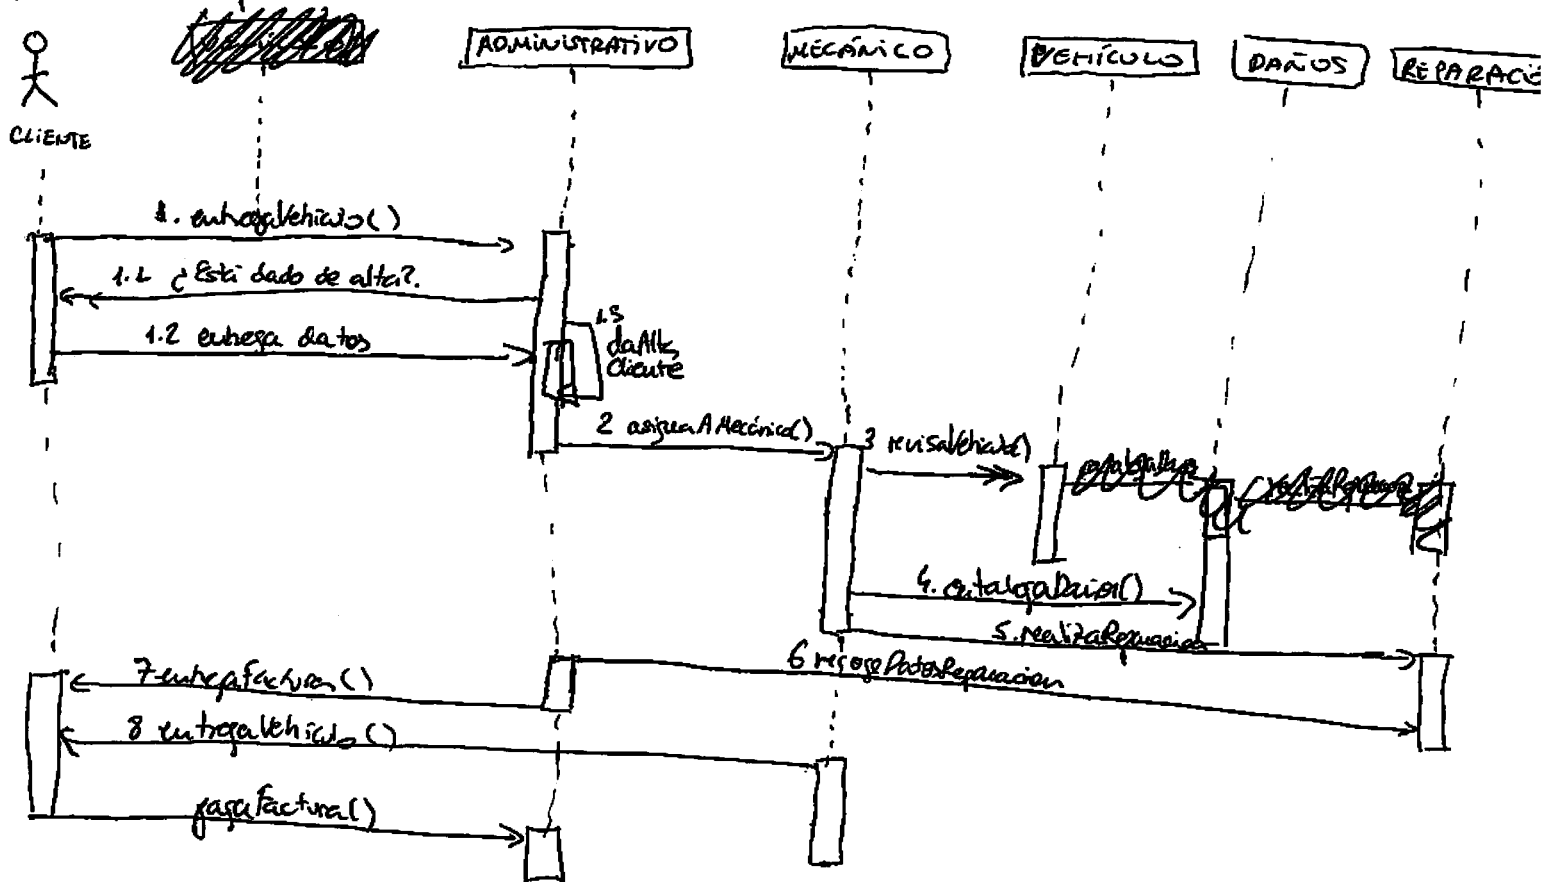 ADMINISTRATIVO
MECÁNICO
VEHÍCULO
DAÑOS
REPARACIÓ
CLIENTE
1. entregaVehiculo()
1.1 ¿Está dado de alta?.
1.2 entrega datos
1.3
daAlta
Cliente
2 asignaAMecánico()
3 revisaVehiculo()
4. catalogaDaños()
5. realizaReparacion
6 recogeDatosReparacion
7 entregaFactura()
8 entregaVehiculo()
pagaFactura()